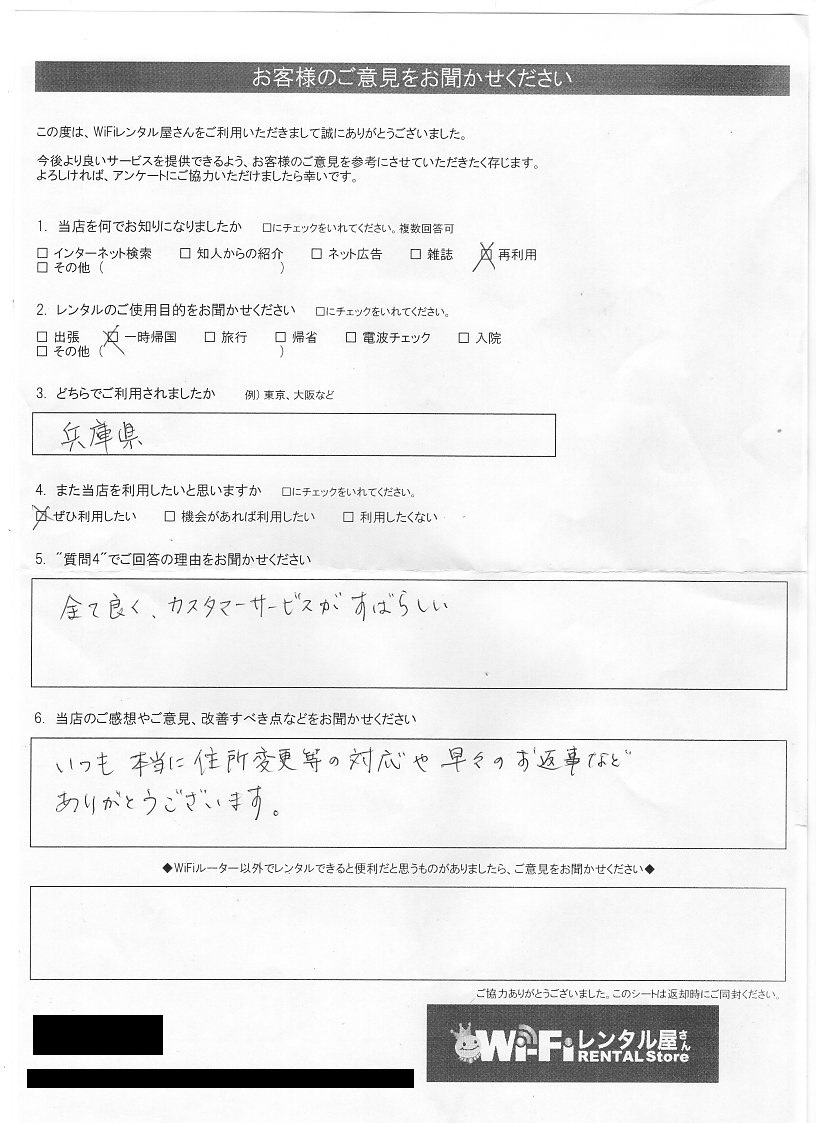 お客様のご意見をお聞かせください
この度は、WiFiレンタル屋さんをご利用いただきまして誠にありがとうございました。
今後より良いサービスを提供できるよう、お客様のご意見を参考にさせていただきたく存じます。
よろしければ、アンケートにご協力いただけましたら幸いです。
1. 当店を何でお知りになりましたか □にチェックをいれてください。複数回答可
□ インターネット検索 □ 知人からの紹介 □ ネット広告 □ 雑誌 ☒ 再利用
□ その他 ( )
2. レンタルのご使用目的をお聞かせください □にチェックをいれてください。
□ 出張 ☒ 一時帰国 □ 旅行 □ 帰省 □ 電波チェック □ 入院
□ その他 ( )
3. どちらでご利用されましたか 例) 東京、大阪など
兵庫県
4. また当店を利用したいと思いますか □にチェックをいれてください。
☒ ぜひ利用したい □ 機会があれば利用したい □ 利用したくない
5. "質問4"でご回答の理由をお聞かせください
全て良く、カスタマーサービスがすばらしい
6. 当店のご感想やご意見、改善すべき点などをお聞かせください
いつも本当に住所変更等の対応や早々のお返事など
ありがとうございます。
◆WiFiルーター以外でレンタルできると便利だと思うものがありましたら、ご意見をお聞かせください◆
ご協力ありがとうございました。このシートは返却時にご同封ください。
Wi-Fiレンタル屋さん
RENTAL Store